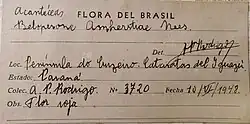 Acantáceas
FLORA DEL BRASIL
Beloperone Amherstiae Nees.
Det.
Loc. Península do Cuzeiro. Cataratas del Iguazú
Estado: Paraná
Colec. A. P. Rodrigo Nº 3720 Fecha 10/VI/1948
Obs. Flor roja